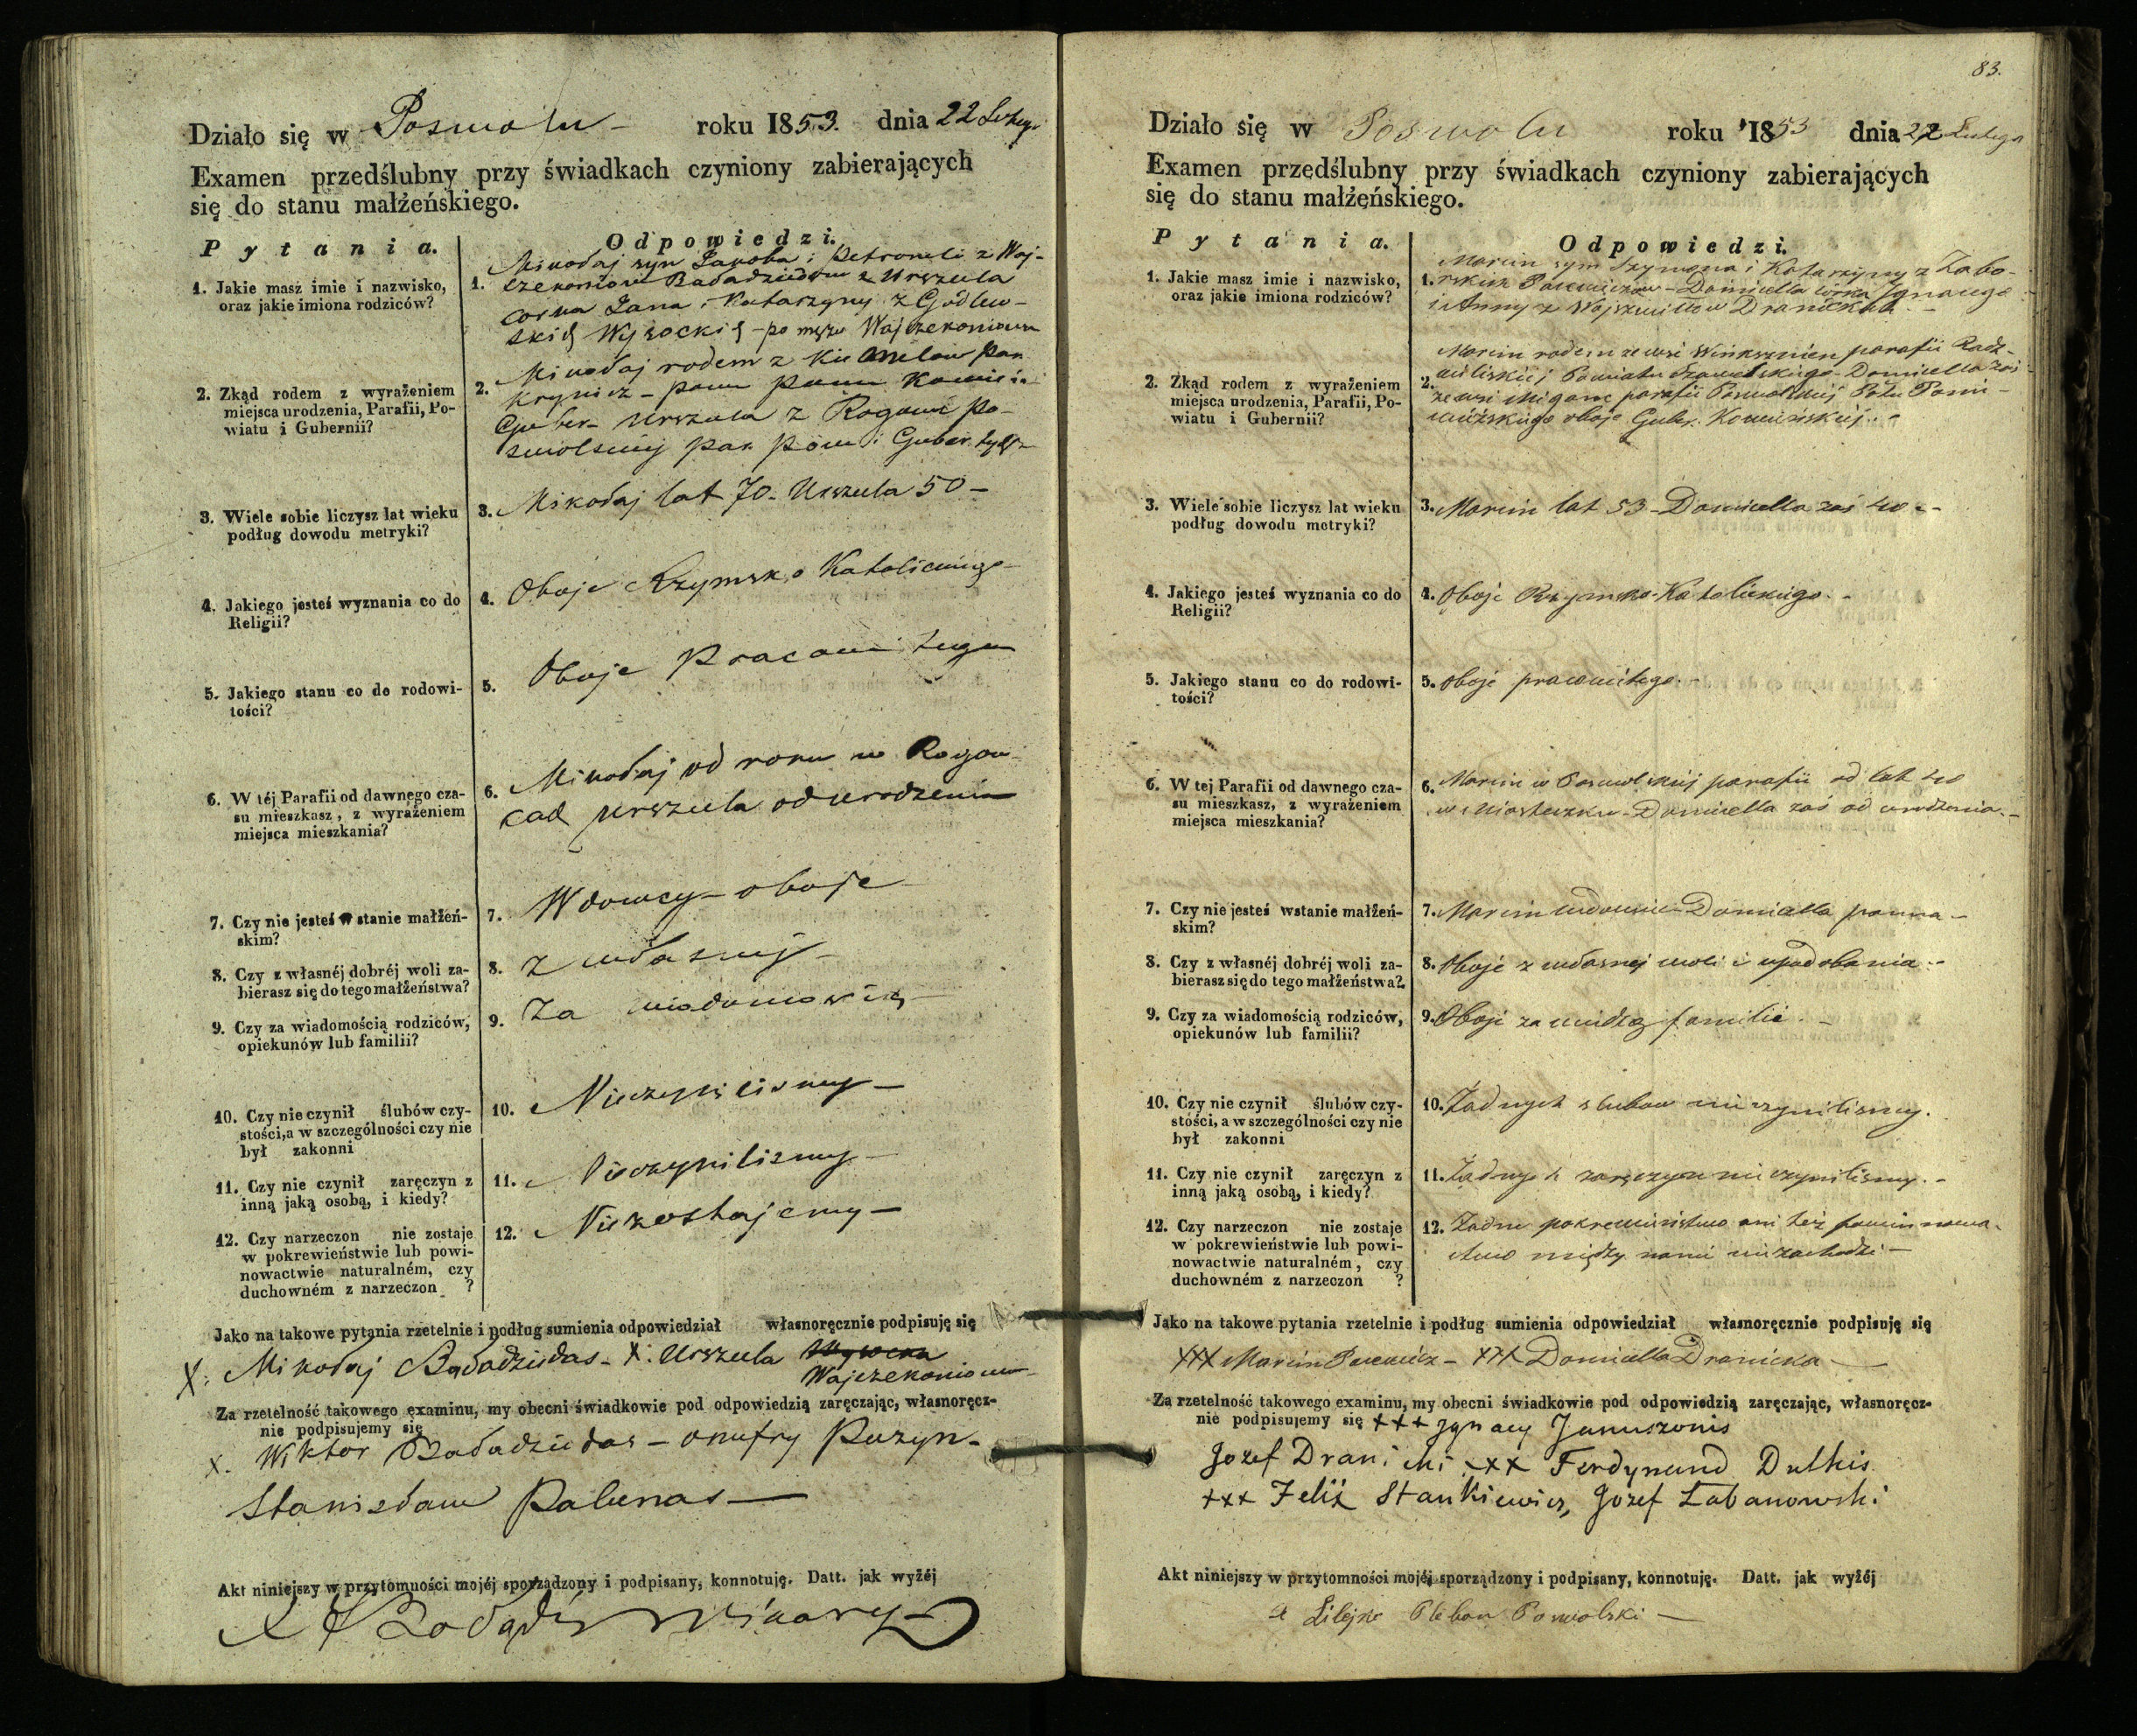 Działo się w Poswolu - roku 1853. dnia 22 Lutego
Examen przedślubny przy świadkach czyniony zabierających
się do stanu małżeńskiego.
Pytania.
Odpowiedzi.
1. Jakie masz imie i nazwisko,
oraz jakie imiona rodziców?
1. Mikołaj syn Jakoba i Petroneli z Woj-
córka Jana i Katarzyny z Godlew-
skich Wysockich - po mężu
2. Zkąd rodem z wyrażeniem
miejsca urodzenia, Parafii, Po-
wiatu i Gubernii?
2. Mikołaj rodem z par
Guber - Urszula z Po-
par i Guber.
3. Wiele sobie liczysz lat wieku
podług dowodu metryki?
3. Mikołaj lat 70 - Urszula 50 -
4. Jakiego jesteś wyznania co do
Religii?
4. Oboje Rzymsko Katolickiego -
5. Jakiego stanu co do rodowi-
tości?
5. Oboje
6. W téj Parafii od dawnego cza-
su mieszkasz, z wyrażeniem
miejsca mieszkania?
6. Mikołaj od roku w
Urszula od urodzenia
7. Czy nie jesteś w stanie małżeń-
skim?
7. Wdowcy - oboje
8. Czy z własnéj dobréj woli za-
bierasz się do tego małżeństwa?
8. z własnej -
9. Czy za wiadomością rodziców,
opiekunów lub familii?
9. Za wiadomością -
10. Czy nie czynił ślubów czy-
stości, a w szczególności czy nie
był zakonni
10. Nieczynilismy -
11. Czy nie czynił zaręczyn z
inną jaką osobą, i kiedy?
11. Nieczynilismy -
12. Czy narzeczon nie zostaje
w pokrewieństwie lub powi-
nowactwie naturalném, czy
duchowném z narzeczon ?
12. Niezostajemy -
Jako na takowe pytania rzetelnie i podług sumienia odpowiedział własnoręcznie podpisuję się
X. Mikołaj Baładziedas - X. Urszula Wysocka
Za rzetelność takowego examinu, my obecni świadkowie pod odpowiedzią zaręczając, własnoręcz-
nie podpisujemy się
x. Wiktor Baładziedas - Onufry Puzyn -
Stanisław Palunas -
Akt niniejszy w przytomności mojéj sporządzony i podpisany, konnotuję. Datt. jak wyżéj
83.
Działo się w Poswolu roku 1853 dnia 22 Lutego
Examen przedślubny przy świadkach czyniony zabierających
się do stanu małżeńskiego.
Pytania.
Odpowiedzi.
1. Jakie masz imie i nazwisko,
oraz jakie imiona rodziców?
1. Marcin syn Szymona i Katarzyny z Zabo-
rskich - Domicella córka Ignacego
i Anny z
2. Zkąd rodem z wyrażeniem
miejsca urodzenia, Parafii, Po-
wiatu i Gubernii?
2. Marcin rodem ze wsi parafii Radz-
Powiatu - Domicella zaś
ze wsi parafii Poswolskiej Potu Ponie-
wiéżskiego oboje Guber. Kowieńskiej. -
3. Wiele sobie liczysz lat wieku
podług dowodu metryki?
3. Marcin lat 53 - Domicella zaś 40 -
4. Jakiego jesteś wyznania co do
Religii?
4. Oboje Rzymsko-Katolickiego. -
5. Jakiego stanu co do rodowi-
tości?
5. Oboje prawowitego. -
6. W tej Parafii od dawnego cza-
su mieszkasz, z wyrażeniem
miejsca mieszkania?
6. Marcin w Poswolskiej parafii od lat 40
w Miasteczku - Domicella zaś od urodzenia. -
7. Czy nie jesteś wstanie małżeń-
skim?
7. Marcin wdowiec - Domicella panna -
8. Czy z własnéj dobréj woli za-
bierasz się do tego małżeństwa?
8. Oboje z własnej woli i upodobania. -
9. Czy za wiadomością rodziców,
opiekunów lub familii?
9. Oboje za wiedzą familii. -
10. Czy nie czynił ślubów czy-
stości, a w szczególności czy nie
był zakonni
10. Żadnych slubow nie czynilismy.
11. Czy nie czynił zaręczyn z
inną jaką osobą, i kiedy?
11. Żadnych zaręczyn nie czynilismy. -
12. Czy narzeczon nie zostaje
w pokrewieństwie lub powi-
nowactwie naturalném, czy
duchowném z narzeczon ?
12. Żadne pokrewieństwo ani też powinnowa-
ctwo między nami nie zachodzi -
Jako na takowe pytania rzetelnie i podług sumienia odpowiedział własnoręcznie podpisuję się
XXX Marcin - XXX Domicella Dranicka -
Za rzetelność takowego examinu, my obecni świadkowie pod odpowiedzią zaręczając, własnoręcz-
nie podpisujemy się +++ Ignacy Januszonis
Jozef Dranicki +++ Ferdynand Dulkis
+++ Felix Stankiewicz, Jozef Labanowski
Akt niniejszy w przytomności mojéj sporządzony i podpisany, konnotuję. Datt. jak wyżéj
Pleban Poswolski -